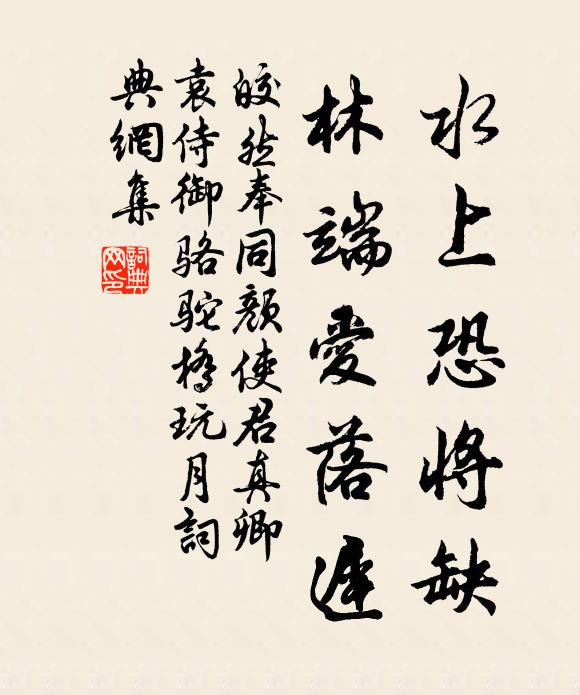 水上恐將缺
林端愛落遲
皎然奉同顏使君真卿
袁侍御駱駝橋玩月詞
典網集
詞典網印